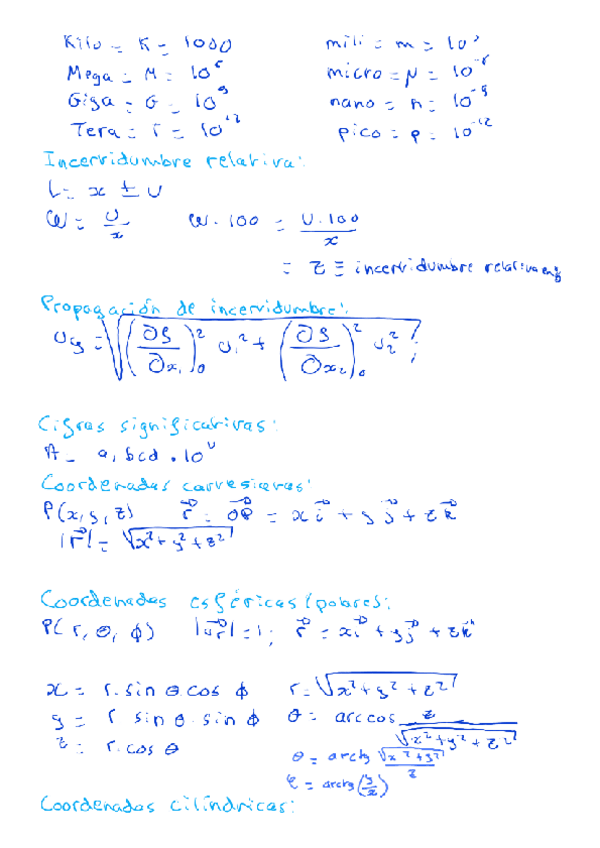 Kilo = K = 1000 mili = m = 10⁻³
Mega = M = 10⁶ micro = μ = 10⁻⁶
Giga = G = 10⁹ nano = n = 10⁻⁹
Tera = T = 10¹² pico = p = 10⁻¹²
Incertidumbre relativa:
L = x ± U
W = U/x W · 100 = U·100/x
= Z ≡ incertidumbre relativa en %
Propagación de incertidumbre:
U_f = √((∂f/∂x₁)²₀ U₁² + (∂f/∂x₂)²₀ U₂²);
Cifras significativas:
A = a,bcd · 10ⁿ
Coordenadas cartesianas:
P(x, y, z) r⃗ = OP⃗ = x i⃗ + y j⃗ + z k⃗
|r⃗| = √(x² + y² + z²)
Coordenadas esféricas (polares):
P(r, θ, ϕ) |u⃗r| = 1; r⃗ = x i⃗ + y j⃗ + z k⃗
x = r · sin θ cos ϕ r = √(x² + y² + z²)
y = r sin θ · sin ϕ θ = arccos z/√(x² + y² + z²)
z = r · cos θ θ = arctg √(x² + y²)/z
φ = arctg (y/x)
Coordenadas cilíndricas: